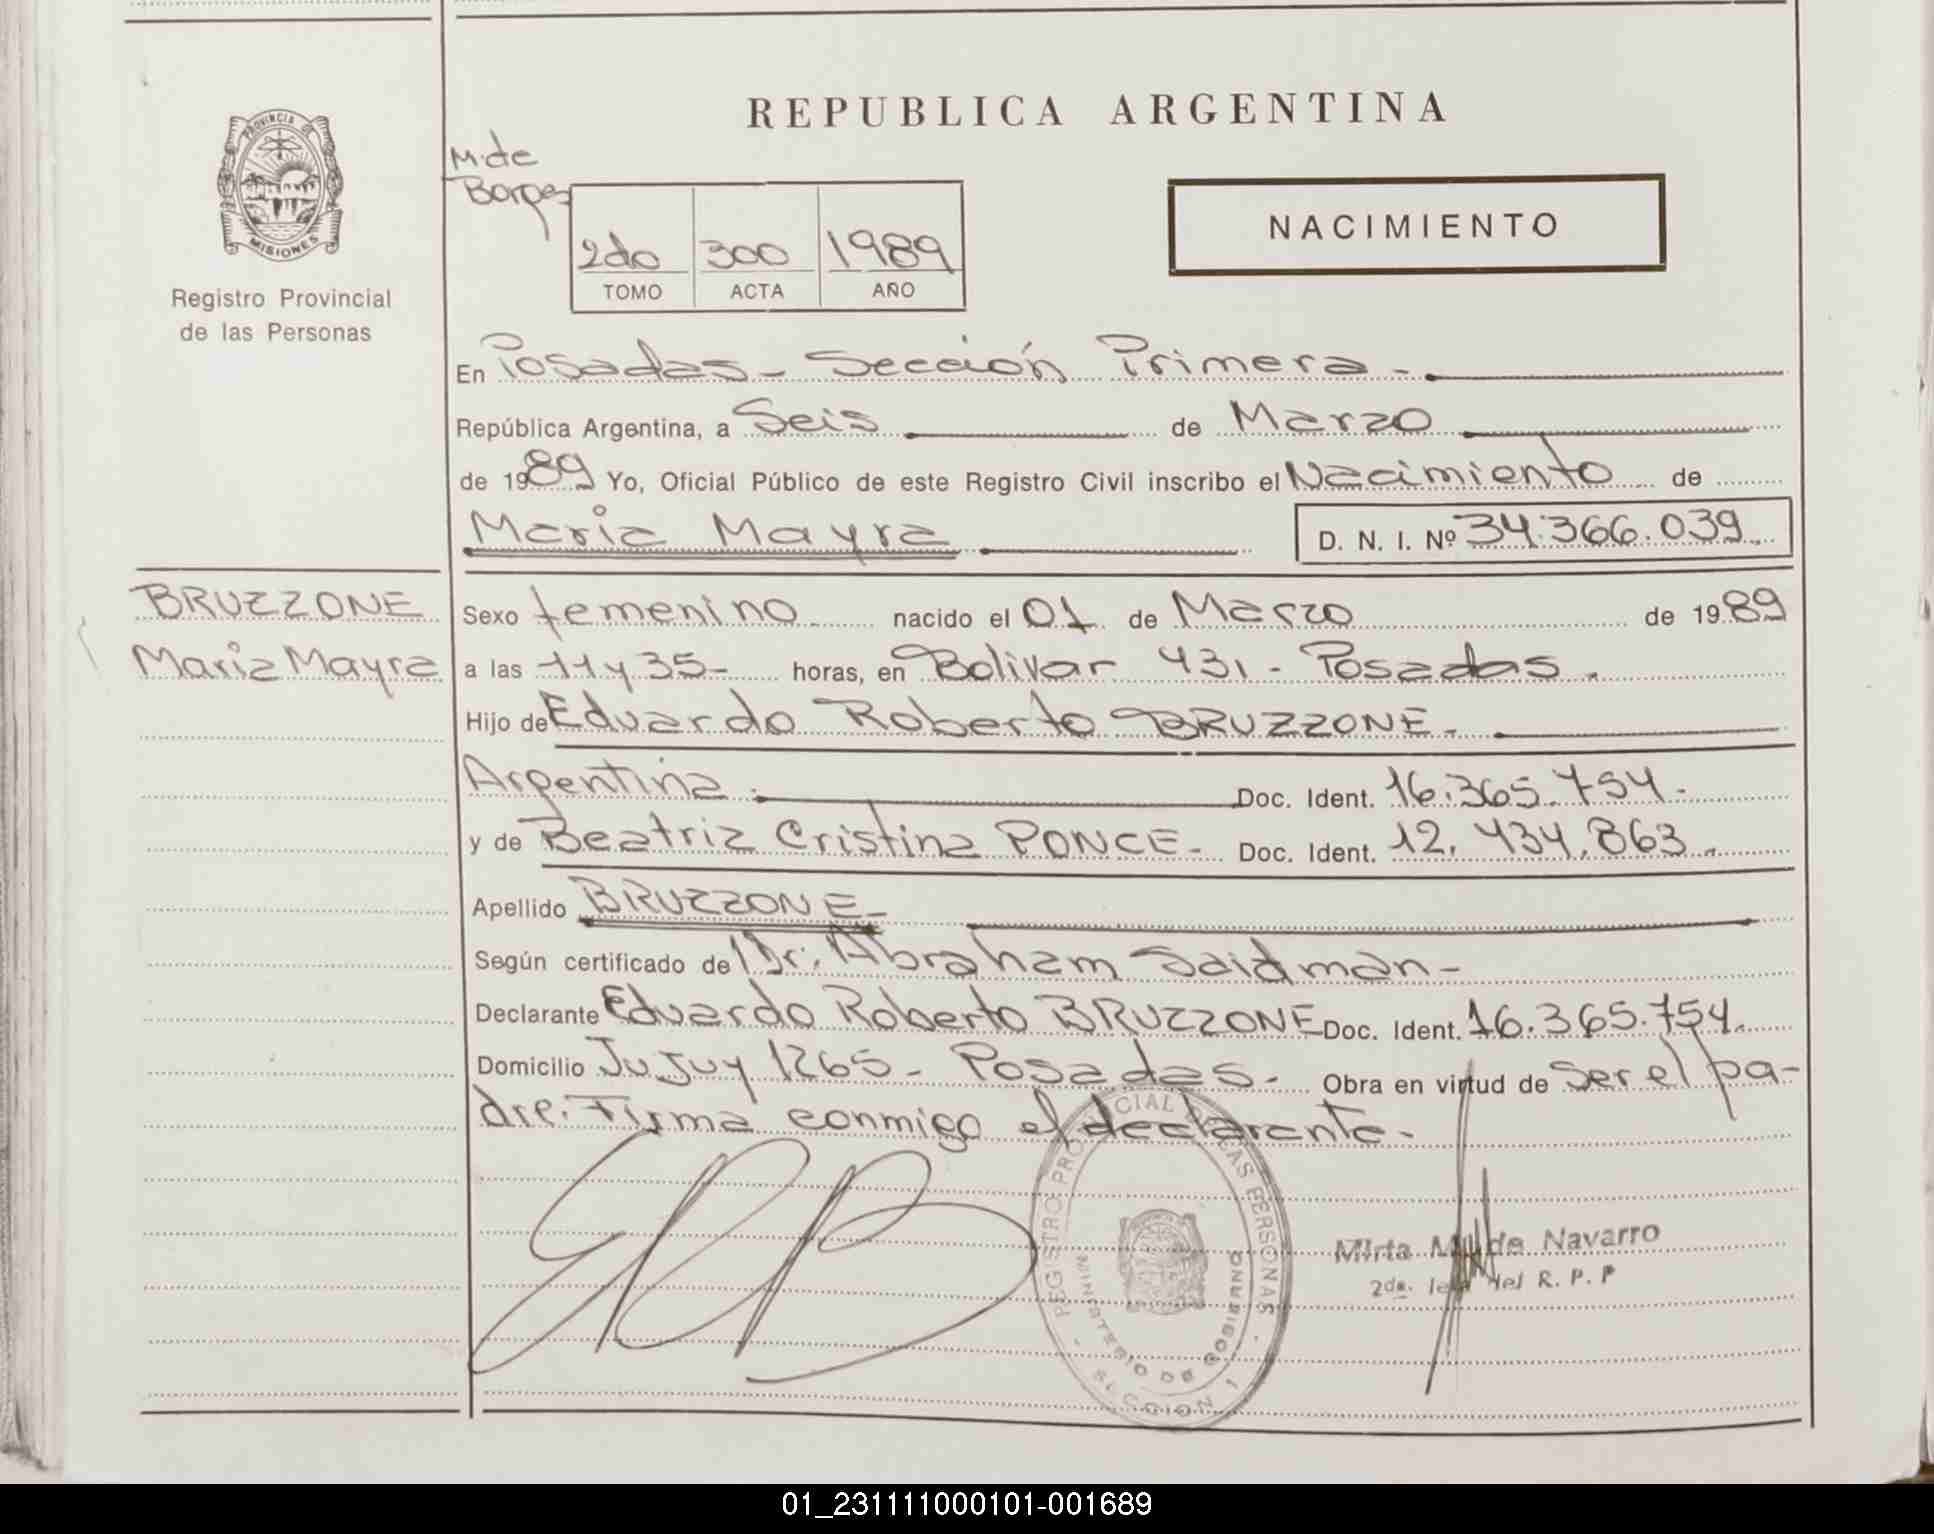 REPUBLICA ARGENTINA
PROVINCIA DE
MISIONES
Registro Provincial
de las Personas
M. de
Borges
2do 300 1989
TOMO ACTA AÑO
NACIMIENTO
En Posadas - Sección Primera -
República Argentina, a Seis de Marzo
de 1989 Yo, Oficial Público de este Registro Civil inscribo el Nacimiento de
Maria Mayra D. N. I. Nº 34.366.039
BRUZZONE
Maria Mayra
Sexo femenino nacido el 01 de Marzo de 1989
a las 11 y 35- horas, en Bolivar 431 - Posadas.
Hijo de Eduardo Roberto BRUZZONE.
Argentina. Doc. Ident. 16.365.754.
y de Beatriz Cristina PONCE- Doc. Ident. 12.434.863.
Apellido BRUZZONE-
Según certificado del Dr. Abraham Saidman-
Declarante Eduardo Roberto BRUZZONE Doc. Ident. 16.365.754.
Domicilio Jujuy 1265 - Posadas. Obra en virtud de Ser el pa-
dre. Firma conmigo el declarante.
REGISTRO PROVINCIAL DE LAS PERSONAS
MINISTERIO DE GOBIERNO
SECCION 1
Mirta M. de Navarro
2da. del R. P. P
01_231111000101-001689